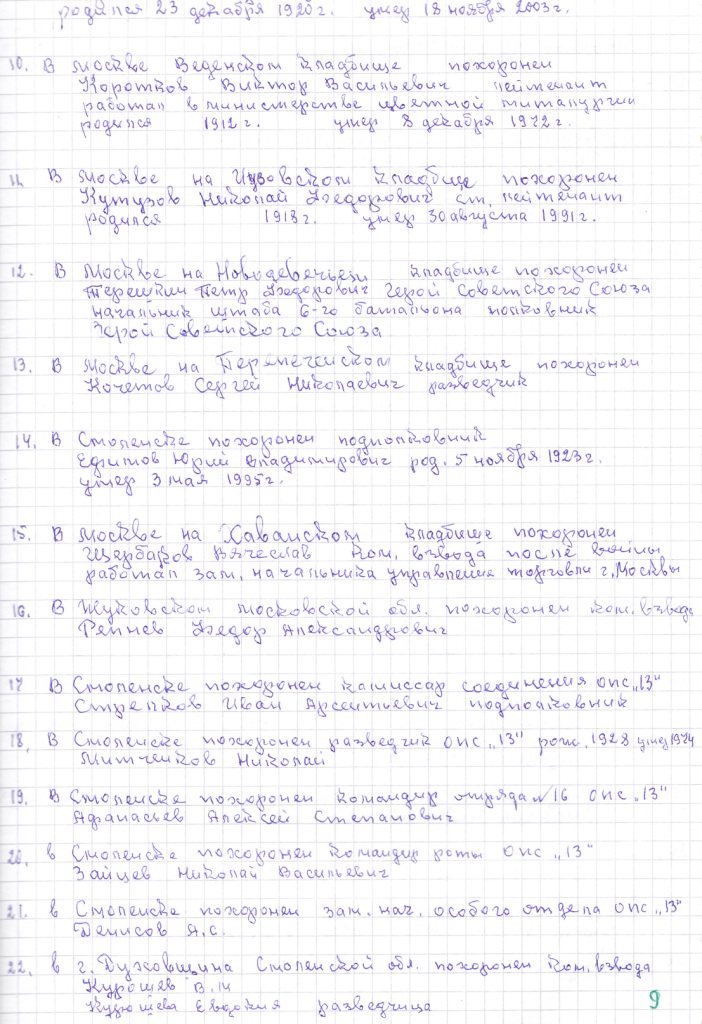 родился 23 декабря 1920г. умер 18 ноября 2003г.
10. В Москве Веденском кладбище похоронен
Коротков Виктор Васильевич лейтенант
работал в министерстве цветной миталургии
родился 1912 г. умер 8 декабря 1972 г.
11. В Москве на кладбище похоронен
Кутузов Николай Федорович ст. лейтенант
родился 1918г. умер 30 августа 1991г.
12. В Москве на Новодевечьем кладбище похоронен
Терешкин Петр Федорович Герой Советского Союза
начальник штаба 6-го батальона полковник
Герой Советского Союза
13. В Москве на Перепеченском кладбище похоронен
Кочетов Сергей Николаевич разведчик
14. В Смоленске похоронен подполковник
Ефимов Юрий Владимирович род. 5 ноября 1923г.
умер 3 мая 1995г.
15. В Москве на Хованском кладбище похоронен
Щербаков Вячеслав ком. взвода после войны
работал зам. начальника управление торговли г. Москвы
16. В Жуковском московской обл. похоронен ком. взвода
Репнев Федор Александрович
17 В Смоленске похоронен камиссар соединения опс „13"
Стрелков Иван Арсентьевич подполковник
18. В Смоленске похоронен разведчик опс „13" рож. 1928 умер 1974
Митченков Николай
19. В Смоленске похоронен командир отряда №16 опс „13"
Афанасьев Алексей Степанович
20. в Смоленске похоронен командир роты опс „13"
Зайцев Николай Васильевич
21. в Смоленске похоронен зам. нач. особого отдела опс „13"
Денисов Я.С.
22. в г. Духовщина Смоленской обл. похоронен ком. взвода
Курошев В.М
Курошева Евдокия разведчица
9